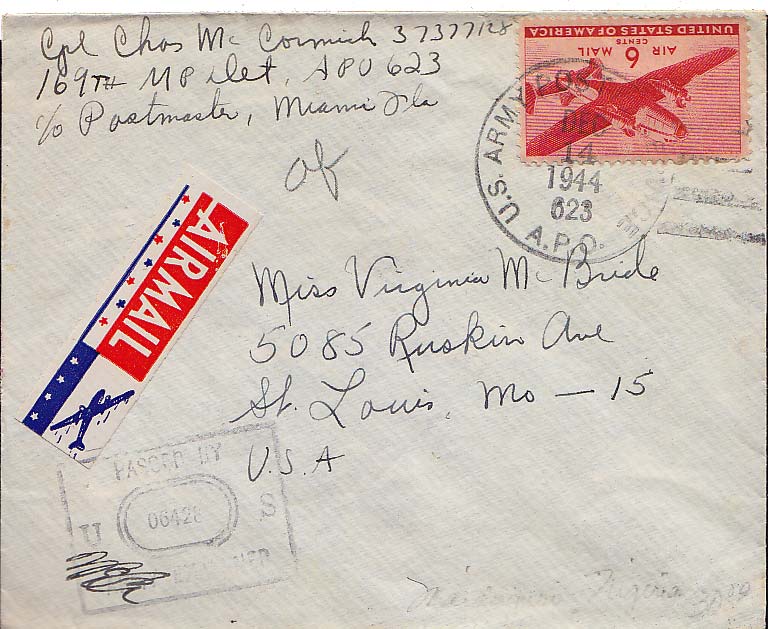 Cpl Chas Mc Cormick 37377128
169TH MP Det, APO 623
c/o Postmaster, Miami Fla
UNITED STATES OF AMERICA
AIR 6 MAIL
CENTS
U.S. ARMY POSTAL
DEC
14
1944
623
A.P.O.
AIR MAIL
Miss Virginia Mc Bride
5085 Ruskin Ave
St. Louis, Mo — 15
U.S.A
PASSED BY
U 06428 S
Nigeria